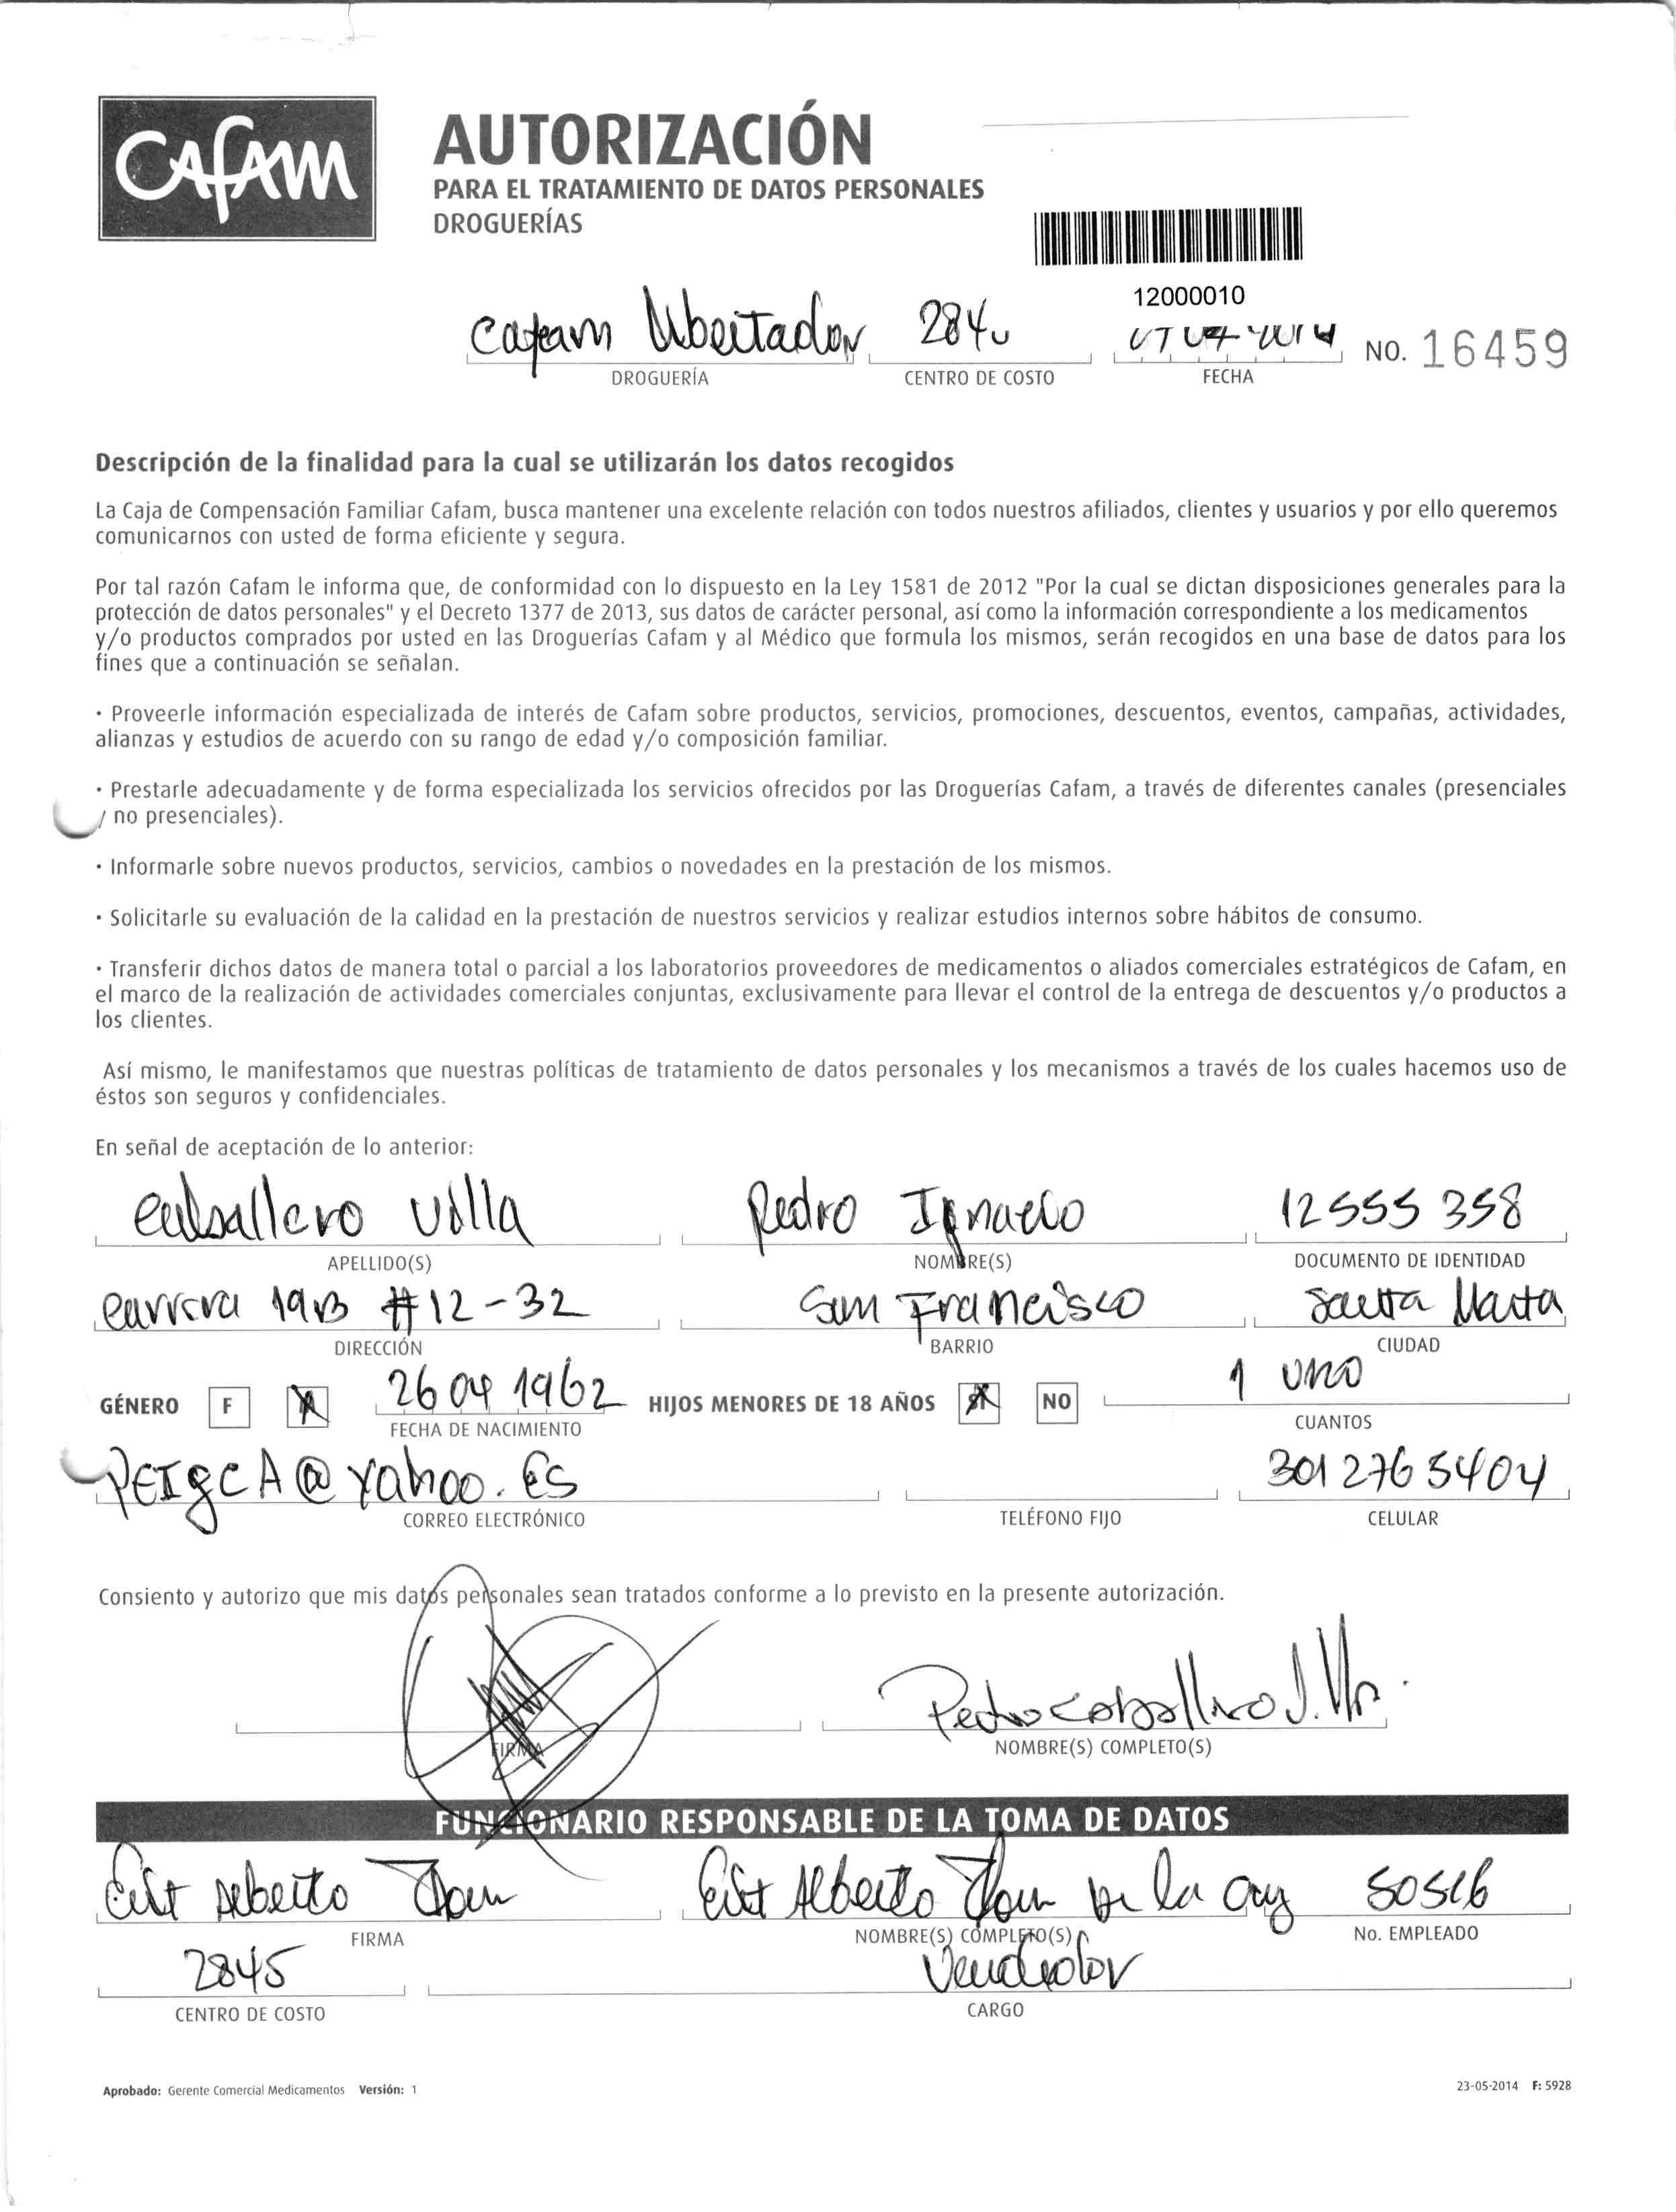 Cafam
AUTORIZACIÓN
PARA EL TRATAMIENTO DE DATOS PERSONALES
DROGUERÍAS
12000010
Cafam Libertador 284
NO. 16459
DROGUERÍA CENTRO DE COSTO FECHA
Descripción de la finalidad para la cual se utilizarán los datos recogidos
La Caja de Compensación Familiar Cafam, busca mantener una excelente relación con todos nuestros afiliados, clientes y usuarios y por ello queremos
comunicarnos con usted de forma eficiente y segura.
Por tal razón Cafam le informa que, de conformidad con lo dispuesto en la Ley 1581 de 2012 "Por la cual se dictan disposiciones generales para la
protección de datos personales" y el Decreto 1377 de 2013, sus datos de carácter personal, así como la información correspondiente a los medicamentos
y/o productos comprados por usted en las Droguerías Cafam y al Médico que formula los mismos, serán recogidos en una base de datos para los
fines que a continuación se señalan.
· Proveerle información especializada de interés de Cafam sobre productos, servicios, promociones, descuentos, eventos, campañas, actividades,
alianzas y estudios de acuerdo con su rango de edad y/o composición familiar.
· Prestarle adecuadamente y de forma especializada los servicios ofrecidos por las Droguerías Cafam, a través de diferentes canales (presenciales
/ no presenciales).
· Informarle sobre nuevos productos, servicios, cambios o novedades en la prestación de los mismos.
· Solicitarle su evaluación de la calidad en la prestación de nuestros servicios y realizar estudios internos sobre hábitos de consumo.
· Transferir dichos datos de manera total o parcial a los laboratorios proveedores de medicamentos o aliados comerciales estratégicos de Cafam, en
el marco de la realización de actividades comerciales conjuntas, exclusivamente para llevar el control de la entrega de descuentos y/o productos a
los clientes.
Así mismo, le manifestamos que nuestras políticas de tratamiento de datos personales y los mecanismos a través de los cuales hacemos uso de
éstos son seguros y confidenciales.
En señal de aceptación de lo anterior:
Caballero Villa Pedro Ignacio 12555 358
APELLIDO(S) NOMBRE(S) DOCUMENTO DE IDENTIDAD
Carrera 19B #12-32 San Francisco Santa Marta
DIRECCIÓN BARRIO CIUDAD
GÉNERO F 26 04 1962 HIJOS MENORES DE 18 AÑOS NO 1 uno
FECHA DE NACIMIENTO CUANTOS
PEIgCA@Yahoo.Es 301 276 5404
CORREO ELECTRÓNICO TELÉFONO FIJO CELULAR
Consiento y autorizo que mis datos personales sean tratados conforme a lo previsto en la presente autorización.
Pedro Caballero V.
FIRMA NOMBRE(S) COMPLETO(S)
FUNCIONARIO RESPONSABLE DE LA TOMA DE DATOS
Alberto Alberto de la
FIRMA NOMBRE(S) COMPLETO(S) No. EMPLEADO
2845 Vendedor
CENTRO DE COSTO CARGO
Aprobado: Gerente Comercial Medicamentos Versión: 1 23-05-2014 F: 5928